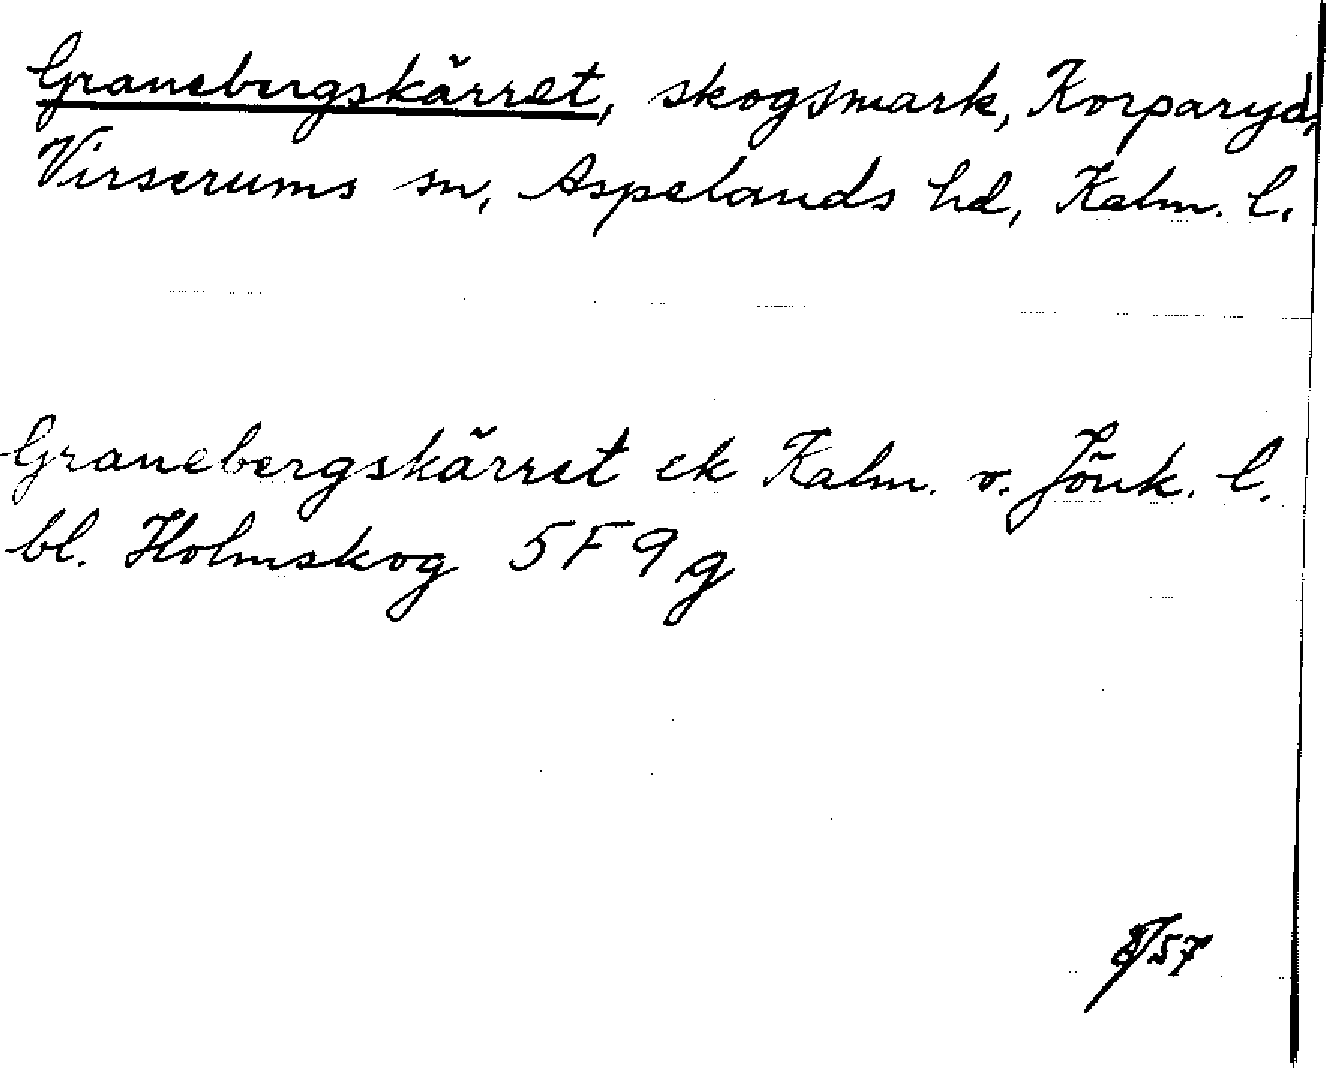 Granebergskärret, skogsmark, Korparyd,
Virserums sn, Aspelands hd, Kalm. l.
Granebergskärret ek Kalm. v. Jönk. l.
bl. Holmskog 5F 9g
/57